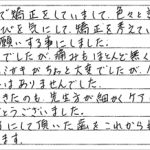 で矯正をしていまして、色々と
びを気にして、矯正を考えてい
願いする事にしました。
でしたが、痛みもほとんど無く
ミガキがちゃんと大変でしたが
はありませんでした。
きたのも、先生方が細かくケア
とうございました。
にして頂いた歯をこれから
ます。